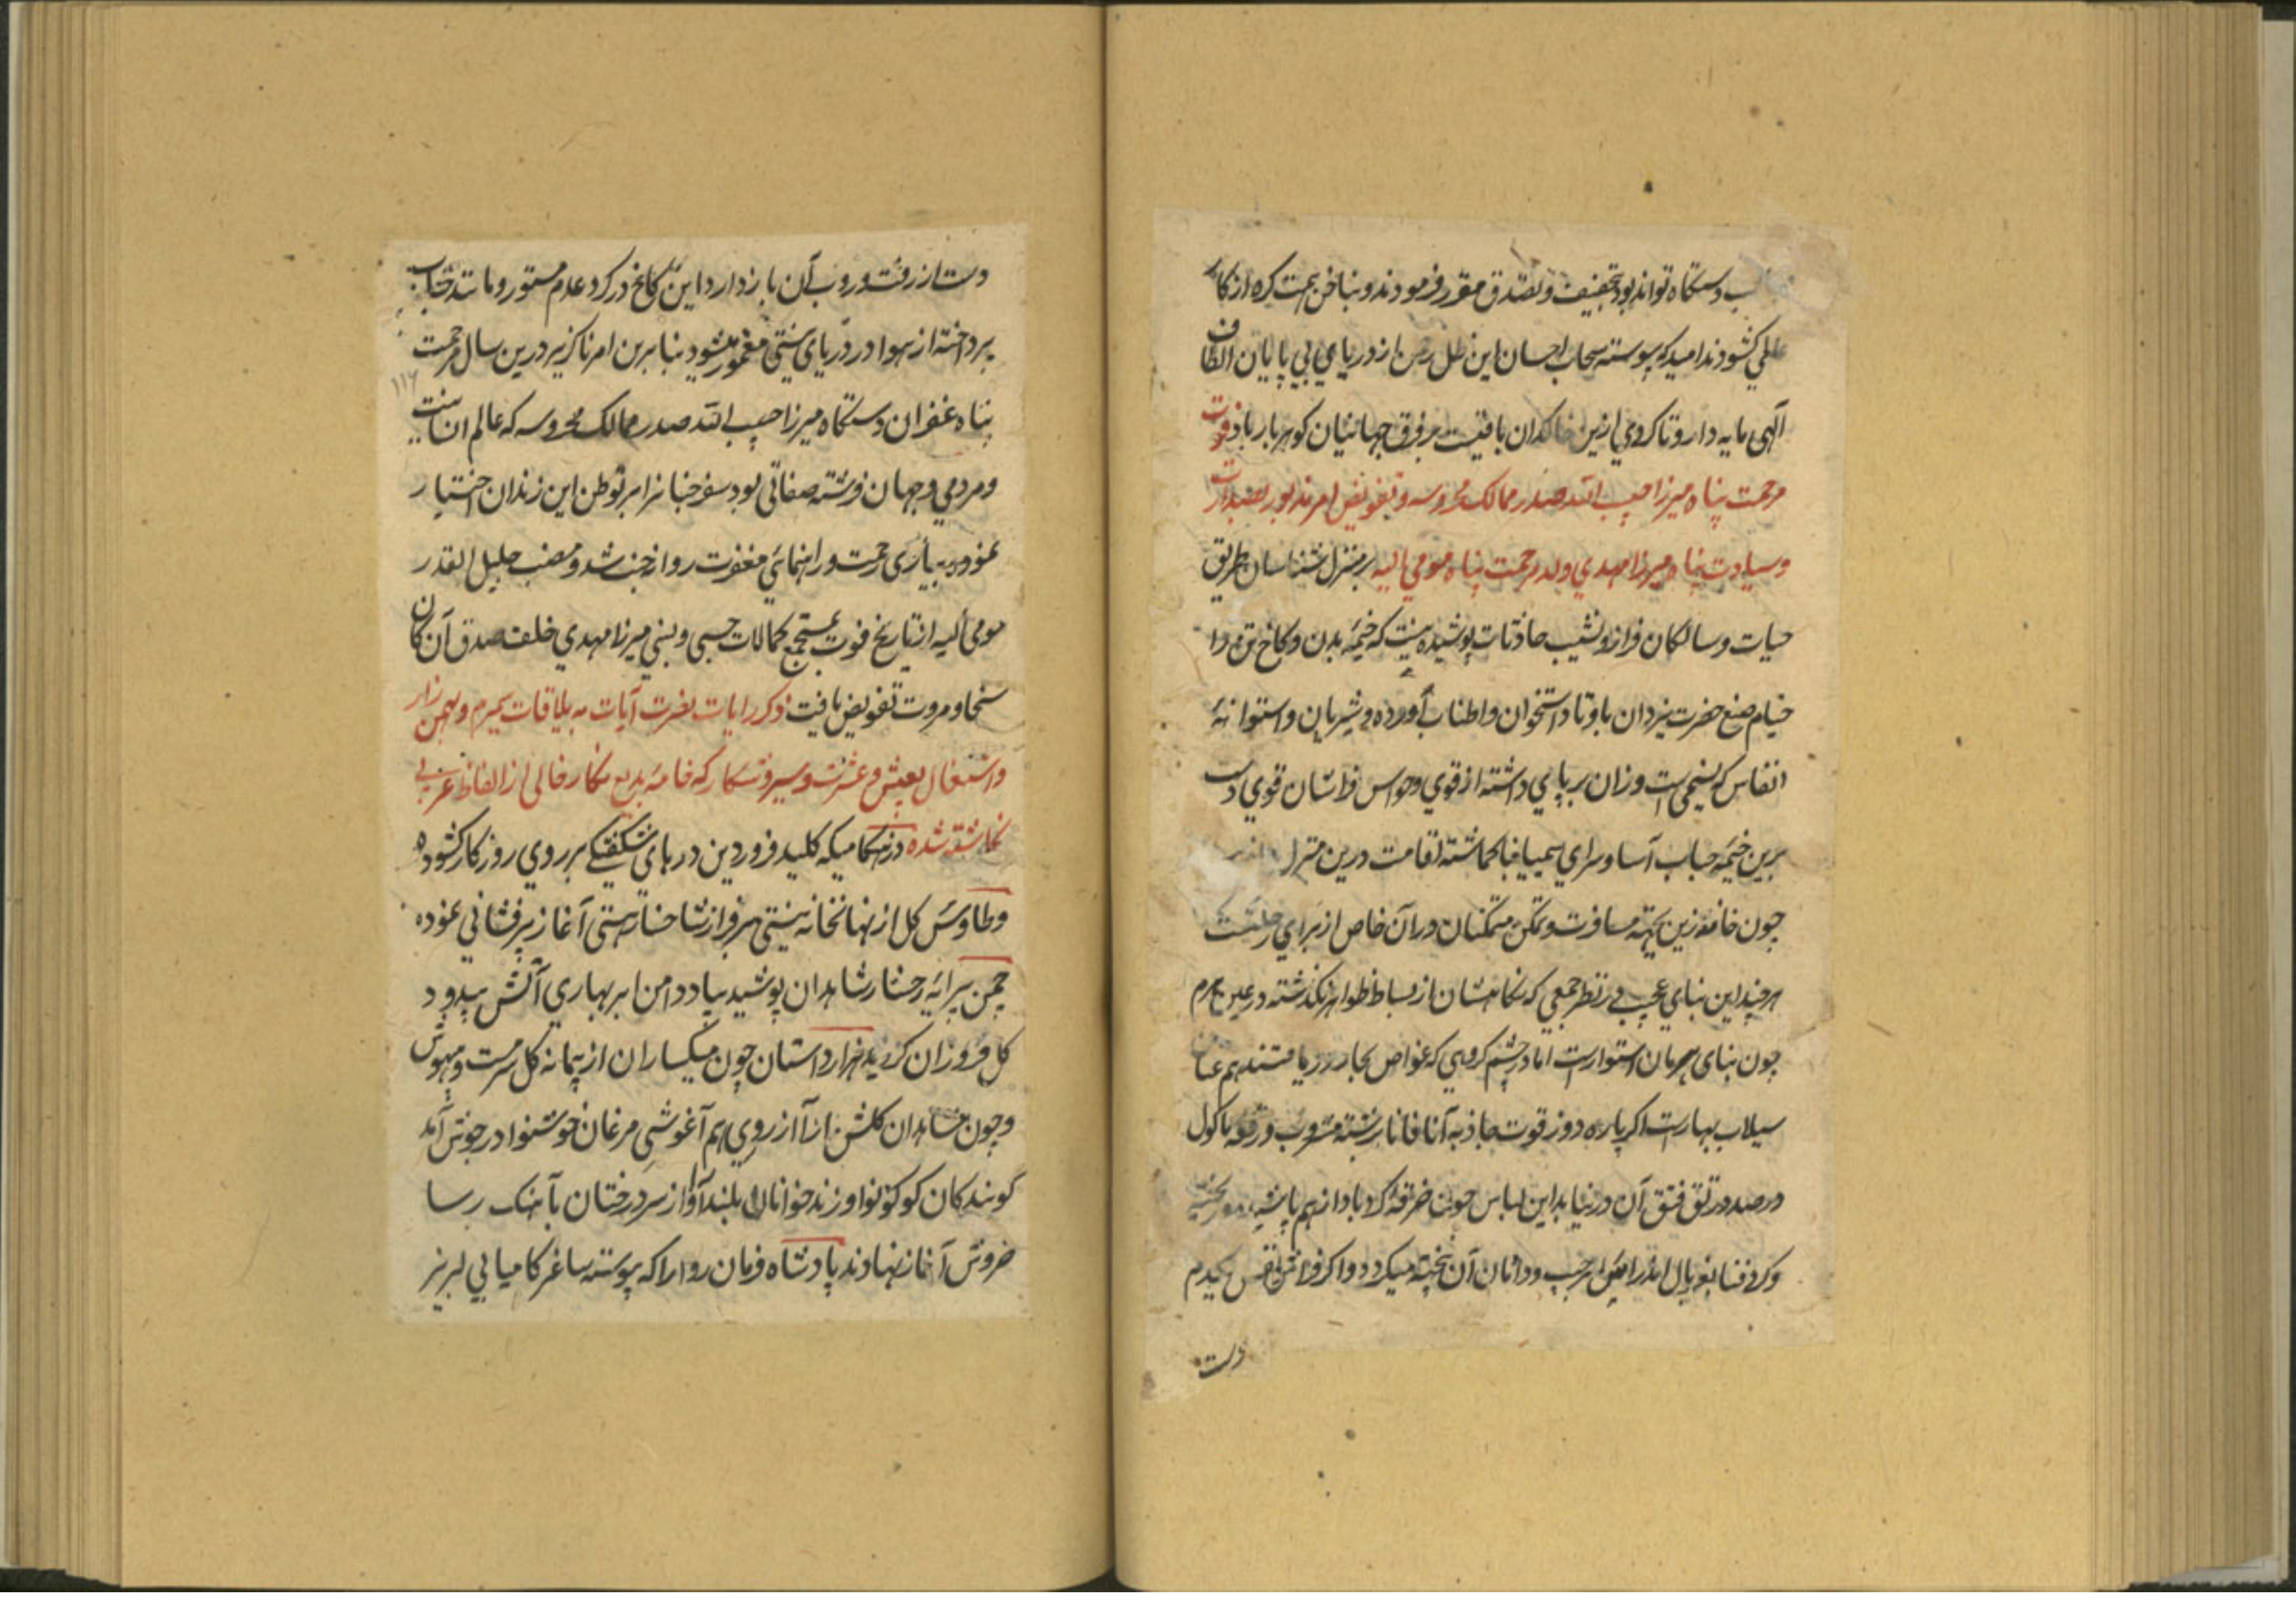 دستگاه تواند بود تخفیف و تصدق مقرر فرمودند و بناخن همت کره از کار
عالمی کشودند امید که پیوسته سحاب احسان این ظل رحمن از دریای بی پایان الطاف
الهی مایه دار و تا کردی ازین خاکدان باقیست بر فرق جهانیان کوهربار باد فوت
مرحمت پناه میرزا حبیب الله صدر ممالک محروسه و تفویض امر مذبور بصدارت
وسیادت پناه میرزا مهدی ولد مرحمت پناه مومی الیه بر منزل شناسان طریق
حیات و سالکان فراز و نشیب حادثات پوشیده نیست که خیمه بدن و کاخ تن را
خیام صنع حضرت یزدان با وتاد استخوان و اطناب آورده و شریان و استوانه
انفاس که نسیمی است وزان بر پای داشته از قوی و حواس فراشان قوی دست
برین خیمه حباب آسا و سرای سیمیا فنا کماشته اقامت درین منزل
چون خانه زین تهیه مسافرت و تمکن متمکنان در آن خاص از برای رحلت است
هر چند این بنای عجیب در نظر جمعی که نکاهشان از بساط ظواهر نکذشته در عین
چون بنای هرمان استوار است اما در چشم کروهی که غواص بحار دریافتند هم عنان
سیلاب بهار است اکر پاره دوز قوت جاذبه آنا فانا برشته مشروب و رقعه ماکول
در صدد رتق فتق آن در نیاید این لباس چون خرقه کرد باد از هم پاشیده
و کرد فنا
دست
دست از رفت و روب آن باز دارد این کاخ در کرد عدم مستور و مانند حباب
پرداخته از هوا در دریای نیستی مغمور میشود بنا برین امر ناکزیر درین سال مرحمت
پناه غفران دستگاه میرزا حبیب الله صدر ممالک محروسه که عالم انسانیت
و مردمی و جهان فرشته صفاتی بود سفر جنانرا بر توطن این زندان اختیار
نموده بیاری رحمت و راهنمائی مغفرت روانه جنت شد و منصب جلیل القدر
مومی الیه از تاریخ فوت بمستجمع کمالات حسبی و نسبی میرزا مهدی خلف صدق آن کان
سخا و مروت تفویض یافت ذکر رایات نصرت آیات به ییلاقات سمیرم و بهمن زار
واشتغال بعیش و عشرت و سیر و شکار که خامه بدیع نکار خالی از الفاظ عربی
نکاشته شده در هنکامیکه کلید فروردین درهای شکفتکی بر روی روزکار کشوده
و طاوس کل از نهانخانه نیستی بر فراز شاخسار هستی آغاز پرفشانی نموده
چمن پیرایه رخسار شاهدان پوشید بباد دامن ابر بهاری آتش بیدود
کل فروزان کردید هزار داستان چون میکساران از پیمانه کل سرمست و بیهوش
و چون شاهدان کلشن از آز روی هم آغوشی مرغان خوشنوا در جوش آمد
گویندکان کوکو نوا و زند خوانان بلند آوا از سر درختان بآهنک رسا
خروش آغاز نهادند پادشاه فرمان روا را که پیوسته ساغر کامیابی لبریز